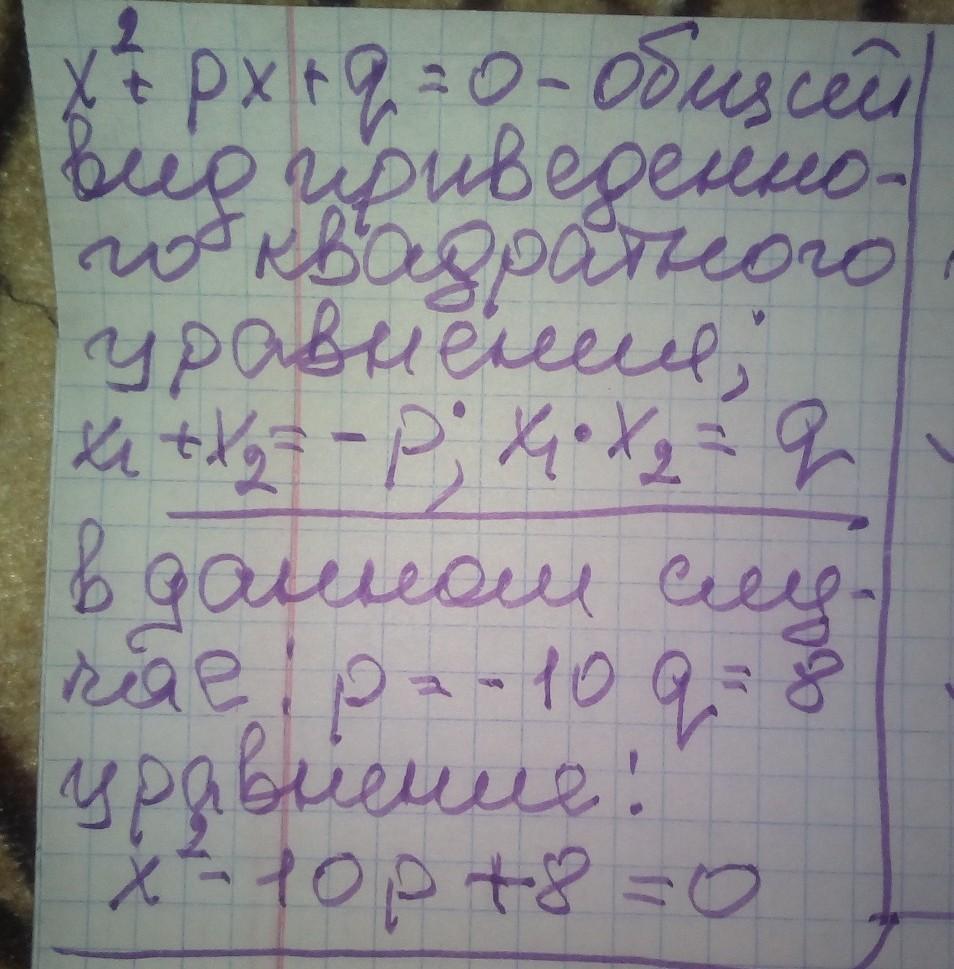 x² + px + q = 0 - общий
вид приведенно-
го квадратного
уравнения;
x₁ + x₂ = - p; x₁ · x₂ = q
в данном слу-
чае: p = - 10 q = 8
уравнение:
x² - 10p + 8 = 0